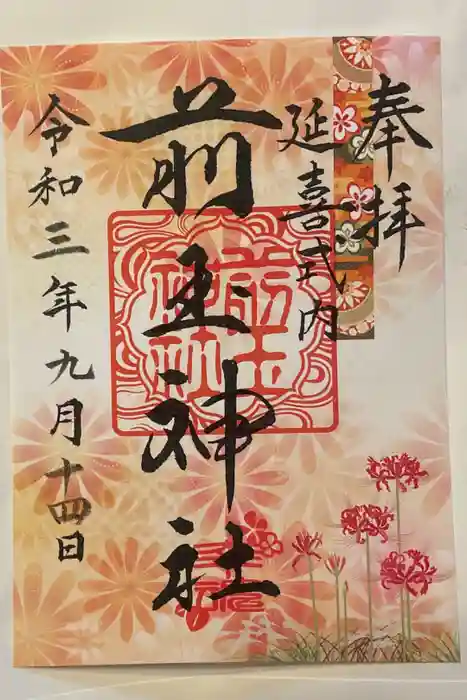 奉拝
延喜式内
前玉神社
令和三年九月十四日
前玉
神社